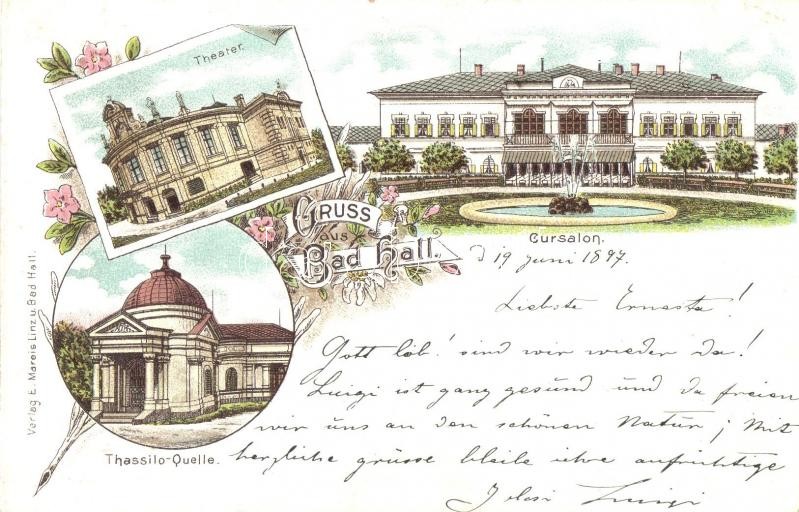 Theater.
GRUSS
aus
Bad Hall.
Cursalon.
Thassilo-Quelle.
Verlag E. Mareis Linz u. Bad Hall.
d 19 Juni 1897.
Liebste Ernesta!
Gott lob! sind wir wieder da!
Luigi ist ganz gesund und da freien
wir uns an den schönen Natur; Mit
herzliche grüsse bleibe ihre aufrichtige
Luigi